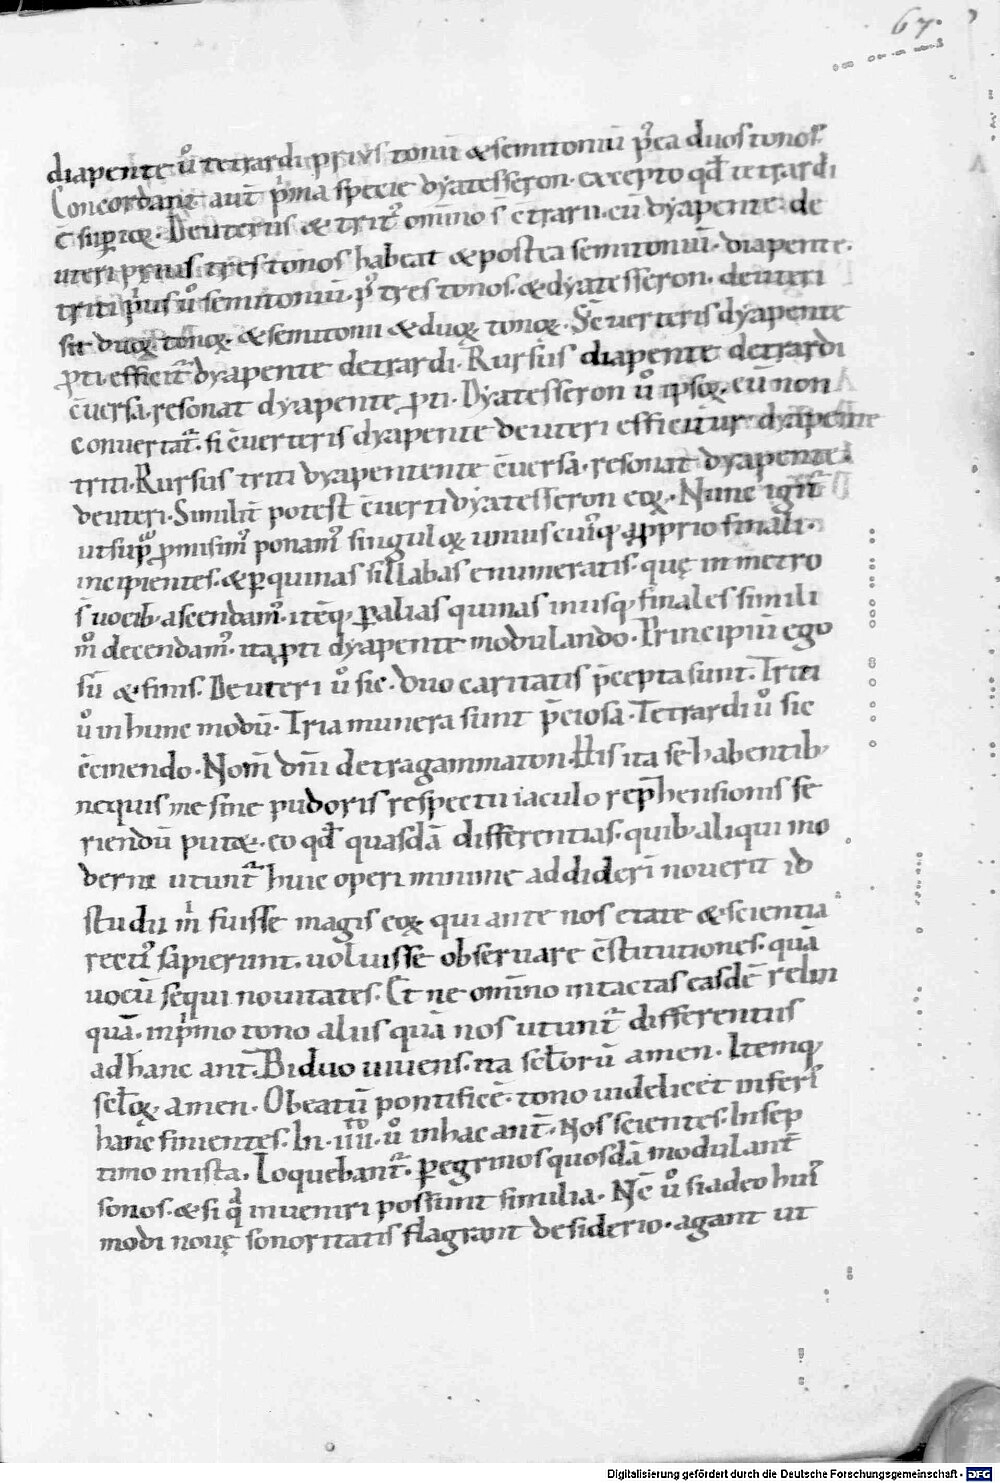 67.
diapente ů tetrardi priuſ tonū & ſemitoniū p̾ ea duoſ tonoſ.
Concordant aut̄ p̓ma ſpecie dyateſſeron. excepto qđ tetrardi
ē ſuꝑioꝝ. Deuteruſ & trit᷒ om̄ino ſ̄ c̄trarii. cū dyapente de
uteri priuſ treſ tonoſ habeat & poſtea ſemitoniū. diapente.
triti p̓us ů ſemitoniū. p̾ treſ tonoſ. & dyateſſeron. deuteri
ſit duoꝝ tonoꝝ. & ſemitonii & duoꝝ tonoꝝ. Si c̄uerteriſ dyapente
ꝓti. efficit᷑ dyapente detrardi. Rurſuſ diapente detrardi
c̄uerſa. reſonat dyapente ꝓti. Dyateſſeron ů ipſoꝝ. cū non
conuertat᷑. ſi c̄uerteriſ dyapente deuteri efficitur dyapente
triti. Rurſuſ triti dyapentente c̄uerſa. reſonat dyapente
deuteri. Similit̄ poteſt c̄uerti dyateſſeron eoꝝ. Nunc igit᷑
ut ſup̾ ꝓmiſim᷒ ponam᷒ ſinguloꝝ uniuſcui᷒q; a ꝓprio finali.
incipienteſ. & ꝑ quinaſ ſillabaſ enumeratiſ. quę in metro
ſ̄ uocib; aſcendam᷒. itēq; ꝑ aliaſ quinaſ in uſq; finaleſ ſimili
m̊ decendam᷒. ita ꝓti dyapente modulando. Principiū ego
ſū & finiſ. Deuteri ů ſic. duo caritatiſ p̄cepta ſunt. Triti
ů in hunc modū. Tria munera ſunt p̄cioſa. Tetrardi ů ſic
c̄cinendo. Nom̄ dn̄i detragammaton. Hiſ ita ſe habentib;
nequiſ me ſine pudoriſ reſpectu iaculo rep̄henſioniſ fe
riendū putet. eo qđ quaſdā differentiaſ. quib; aliqui mo
derni utunt᷑ huic operi minime addiderī nouerit id
ſtudii m̓ fuiſſe magiſ eoꝝ qui ante noſ etate & ſcientia
recti᷒ ſapierunt. uoluiſſe obſeruare c̄ſtitutioneſ. quā
uocū ſequi nouitateſ. Et ne om̄ino intactaſ eaſdē relin
quā. in p̓mo tono aliiſ quā noſ utunt᷑ differentiiſ
ad hanc ant̄. Biduo uiuenſ. ita ſcl̄orū amen. Itemq;
ſcl̄oꝝ. amen. O beatū pontificē. tono uidelicet inferi᷒
hanc finienteſ. In. iiii͛ͦ. ů in hac ant̄. Noſ ſcienteſ. In ſep
timo in iſta. Loquebant᷑. ꝑegrinoſ quoſdā modulant᷑
ſonoſ. & ſi qͣ inueniri poſſunt ſimilia. Nc̄ ů ſi adeo hui᷒
modi nouę ſonoritatiſ flagrant deſiderio. agant ut
Digitalisierung gefördert durch die Deutsche Forschungsgemeinschaft - DFG